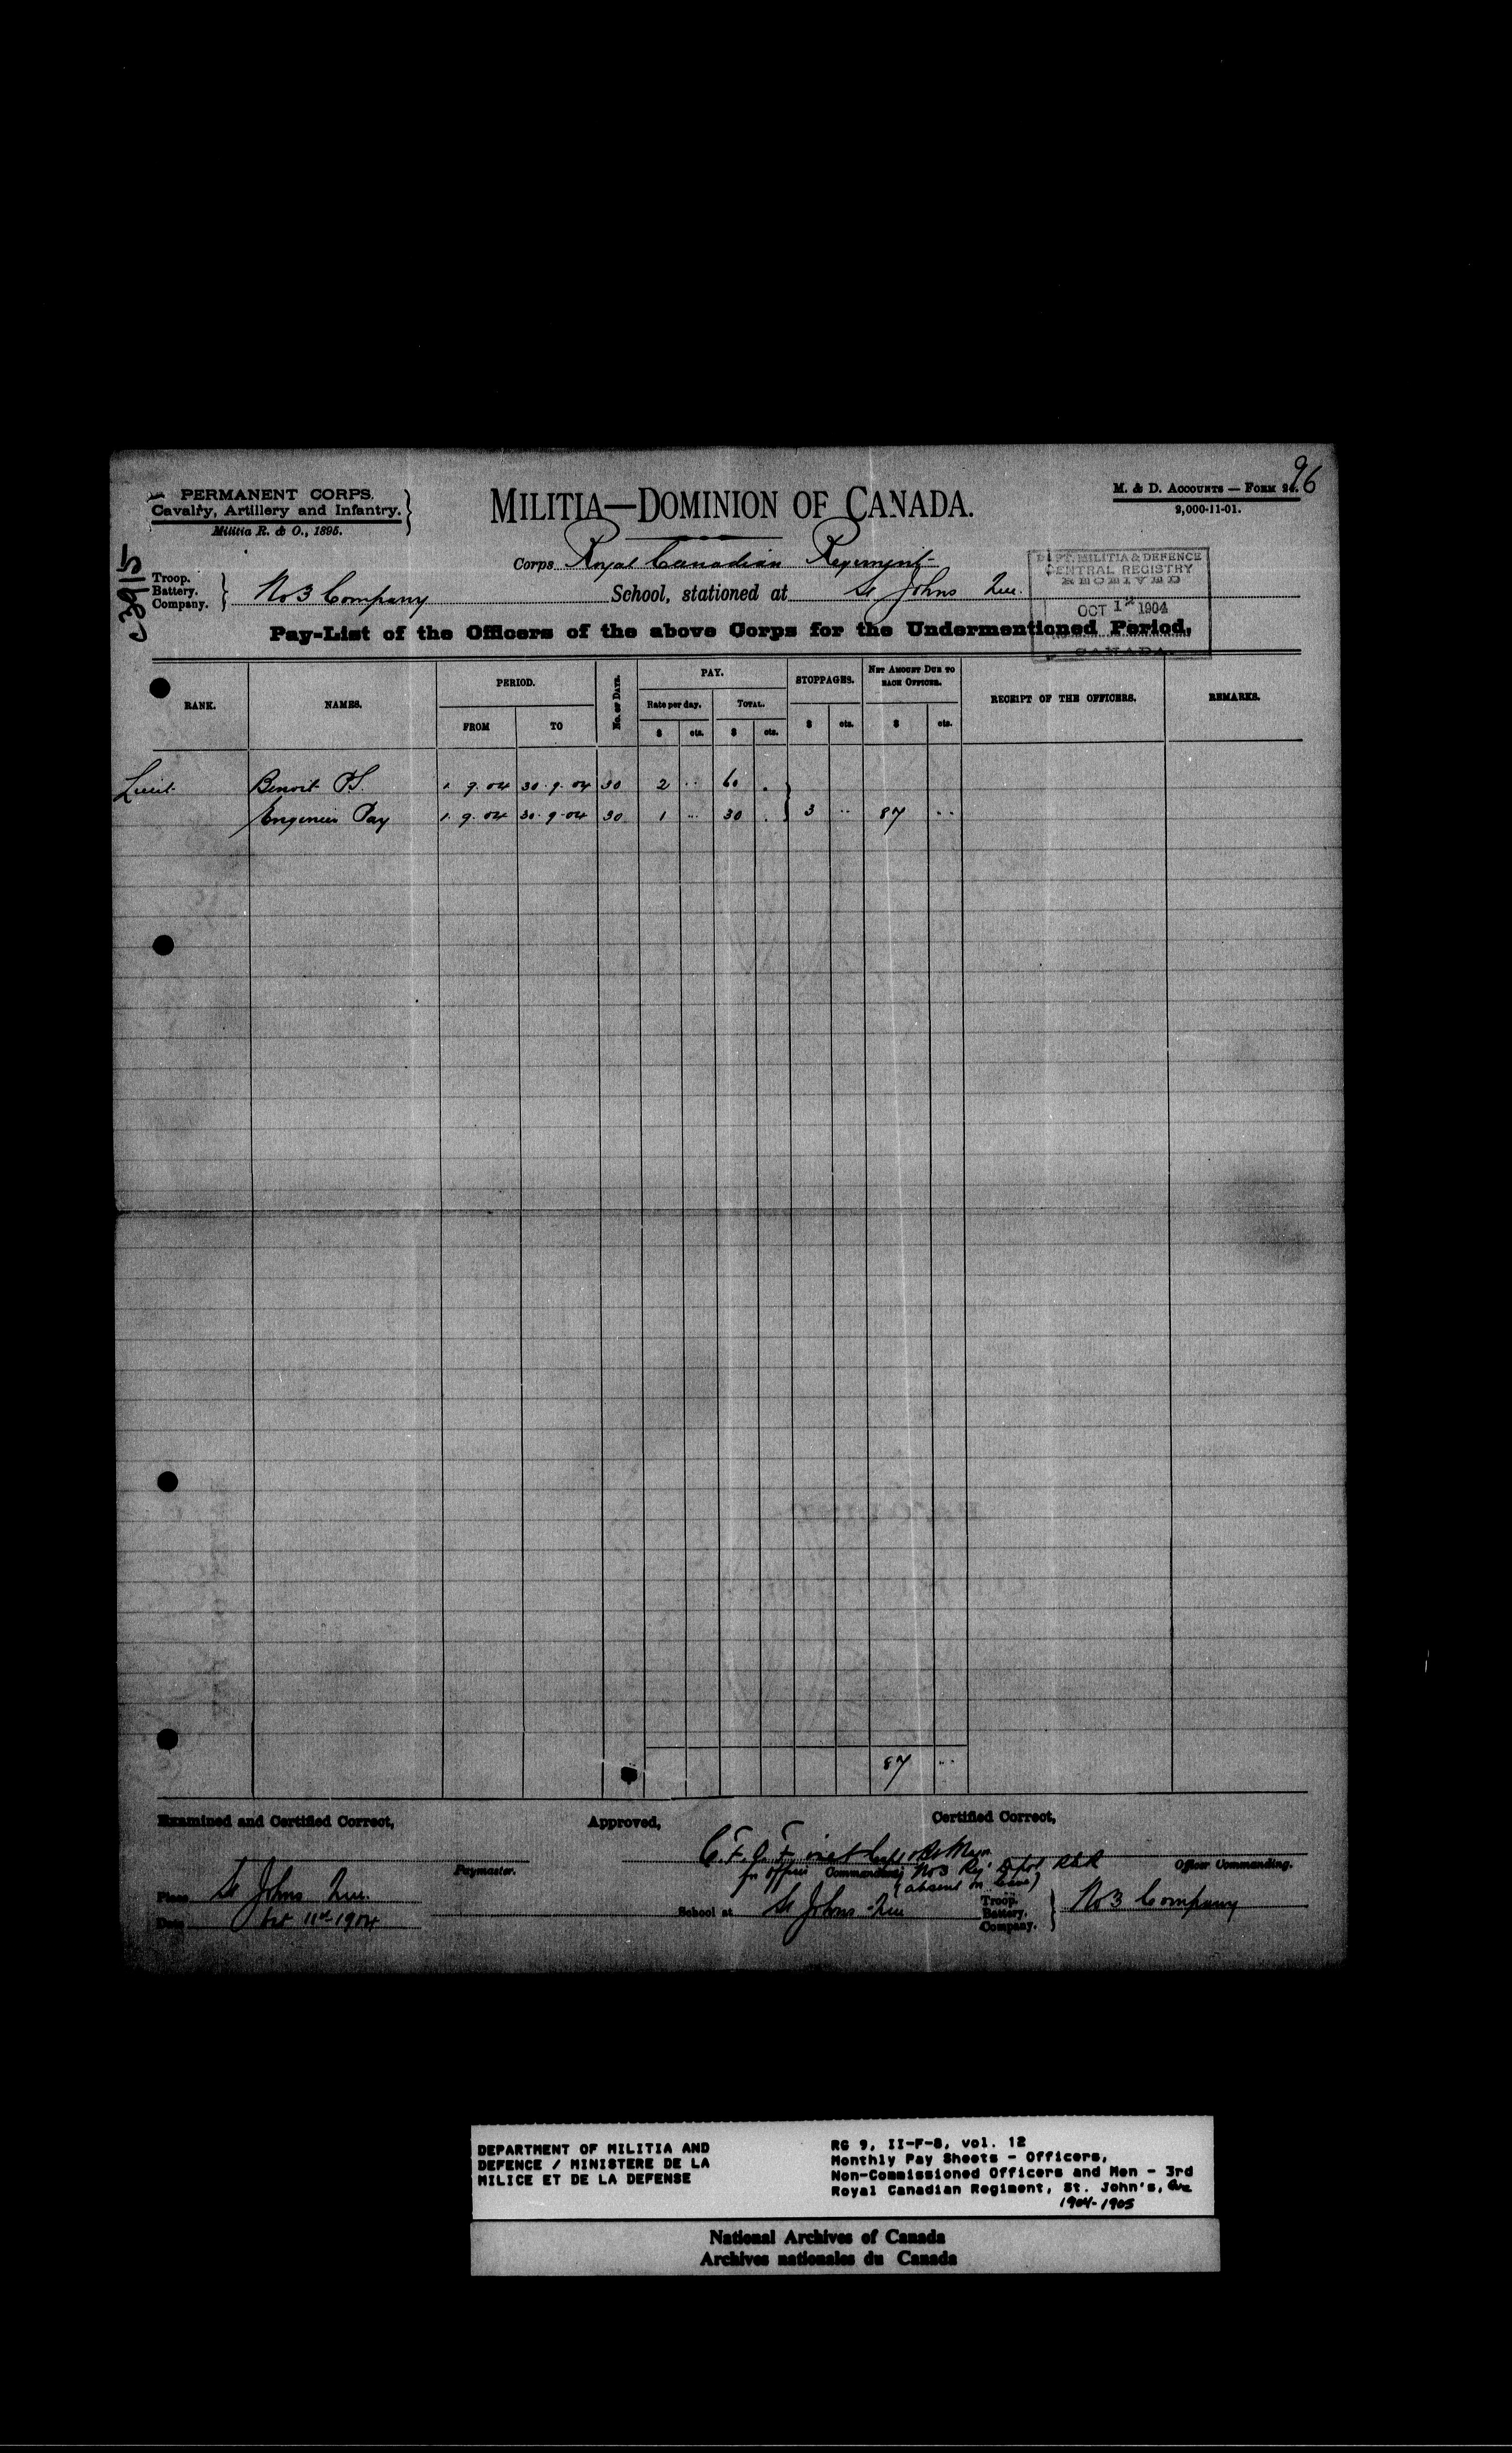 96
PERMANENT CORPS.
Cavalry, Artillery and Infantry.
Militia R. & O., 1895.
MILITIA—DOMINION OF CANADA.
M. & D. ACCOUNTS — FORM 24.
2,000-11-01.
C3915
Corps Royal Canadian Regiment
Troop.
Battery.
Company.
No 3 Company School, stationed at St Johns Que.
DEPT. MILITIA & DEFENCE
CENTRAL REGISTRY
RECEIVED
OCT 12 1904
CANADA.
Pay-List of the Officers of the above Corps for the Undermentioned Period.
RANK. NAMES. PERIOD. No. of Days. PAY. STOPPAGES. NET AMOUNT DUE TO EACH OFFICER. RECEIPT OF THE OFFICERS. REMARKS.
FROM TO Rate per day. TOTAL. $ cts. $ cts.
$ cts. $ cts.
Lieut. Benoit P.S. 1. 9. 04 30. 9. 04 30 2 .. 60 .
Engineer Pay 1. 9. 04 30. 9. 04 30 1 .. 30 . 3 .. 87 ..
87 ..
Examined and Certified Correct, Approved, Certified Correct,
Paymaster.
for Officer Commanding No 3 Reg. Depot RCR
(absent on leave)
Officer Commanding.
Place St Johns Que.
Date Oct 11th 1904
School at St Johns Que
Troop.
Battery.
Company.
No 3 Company
DEPARTMENT OF MILITIA AND
DEFENCE / MINISTERE DE LA
MILICE ET DE LA DEFENSE
RG 9, II-F-8, vol. 12
Monthly Pay Sheets - Officers,
Non-Commissioned Officers and Men - 3rd
Royal Canadian Regiment, St. John's, Que
1904-1905
National Archives of Canada
Archives nationales du Canada